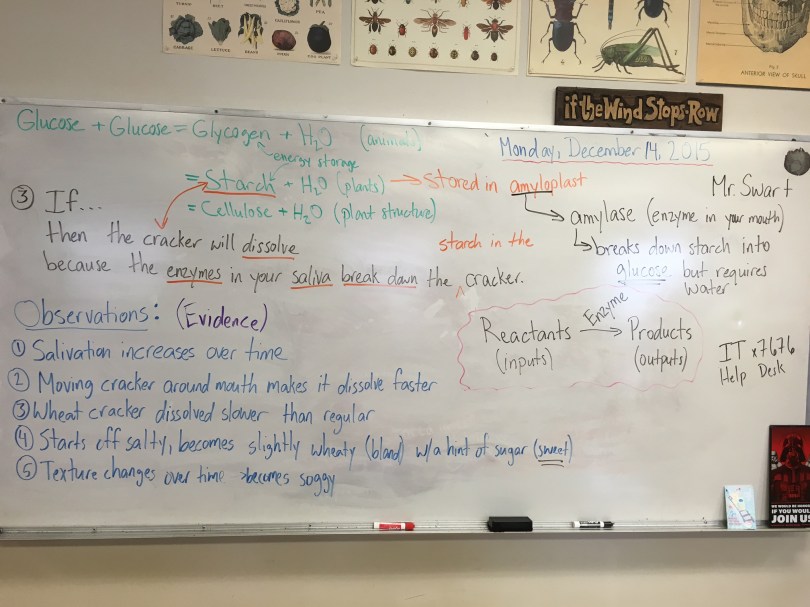 CABBAGE
LETTUCE
BEANS
ONION
EGG PLANT
PEA
ANTERIOR VIEW OF SKULL
if the Wind Stops Row
Glucose + Glucose = Glycogen + H₂O (animals)
energy storage
Monday, December 14, 2015
= Starch + H₂O (plants) → Stored in amyloplast
Mr. Swart
③ If...
= Cellulose + H₂O (plant structure)
amylase (enzyme in your mouth)
then the cracker will dissolve
starch in the
breaks down starch into
because the enzymes in your saliva break down the ^ cracker.
glucose but requires
water
Observations: (Evidence)
Reactants Enzyme → Products
(inputs) (outputs)
IT x7676
Help Desk
① Salivation increases over time
② Moving cracker around mouth makes it dissolve faster
③ Wheat cracker dissolved slower than regular
④ Starts off salty, becomes slightly wheaty (bland) w/ a hint of sugar (sweet)
⑤ Texture changes over time > becomes soggy
IF YOU WOULD
JOIN US